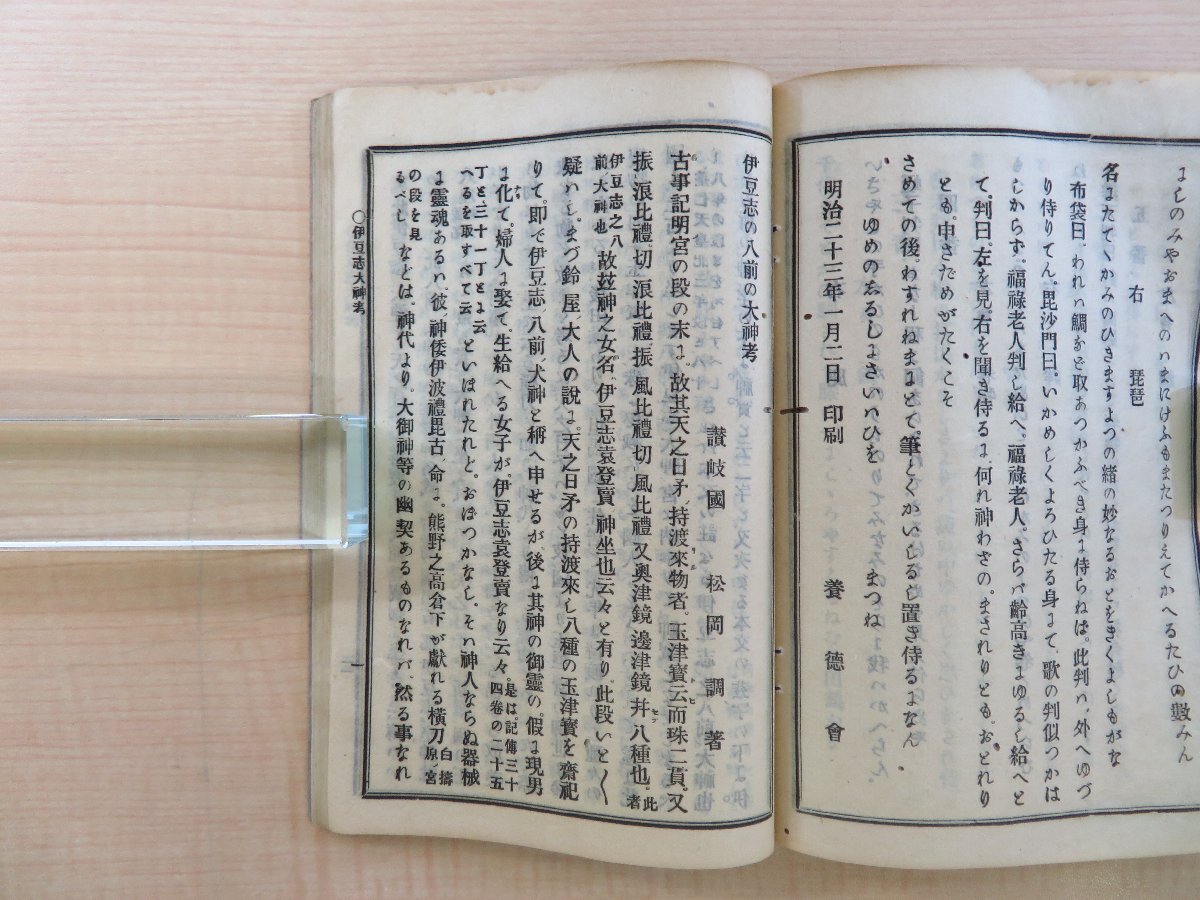 よしのみやおまへのハまにけふもまたつりえてかへるたひの數みん
右　琵琶
名またてくかみのひきますよつの緒の妙なるおとをきくよしもがな
布袋曰、われハ鯛など取あつかふべき身ま侍らねば。此判ハ、外へゆづ
り侍りてん。毘沙門曰。いかめしくよろひたる身まて、歌の判似つかは
もしからず。福祿老人判し給へ。福祿老人。さらバ齡高きまゆるし給へと
て。判曰。左を見。右を聞き侍るま、何れ神わざの。まされりとも。おとれり
とも。申さだめがたくこそ
さめての後。わすれねまよとて、筆とくかいしるし置き侍るまなん
まつね
いさやゆめのたるしよさいハひを
明治二十三年一月二日　印刷　養德會
伊豆志の八前の大神考
讃岐國　松岡調　著
古事記明宮の段の末ま。故其天之日矛、持渡來物者。玉津寶云而珠二貫。又
振浪比禮。切浪比禮。振風比禮。切風比禮。又奥津鏡。邊津鏡。幷八種也。此者
伊豆志之八前大神也。故玆神之女名、伊豆志袁登賣神坐也云々と有り、此段いと〳〵
疑ハし。まづ鈴屋大人の說ま。天之日矛の持渡來し八種の玉津寶を齋祀
りて。即て伊豆志八前大神と稱へ申せるが、後ま其神の御靈の。假ま現男
ま化て。婦人ま娶て。生給へる女子が。伊豆志袁登賣なり云々。是は。記傳三十四卷の二十五
丁と、三十一丁とよ云へるを取すべて云　といはれたれど。おぼつかなし。そハ神人ならぬ器械
ま靈魂あるハ、彼神倭伊波禮毘古命ま。熊野之高倉下が獻れる橫刀白檮原宮
の段を見るべし　などは。神代より。大御神等の幽契あるものなれバ。然る事なれ
〇伊豆志大神考
一